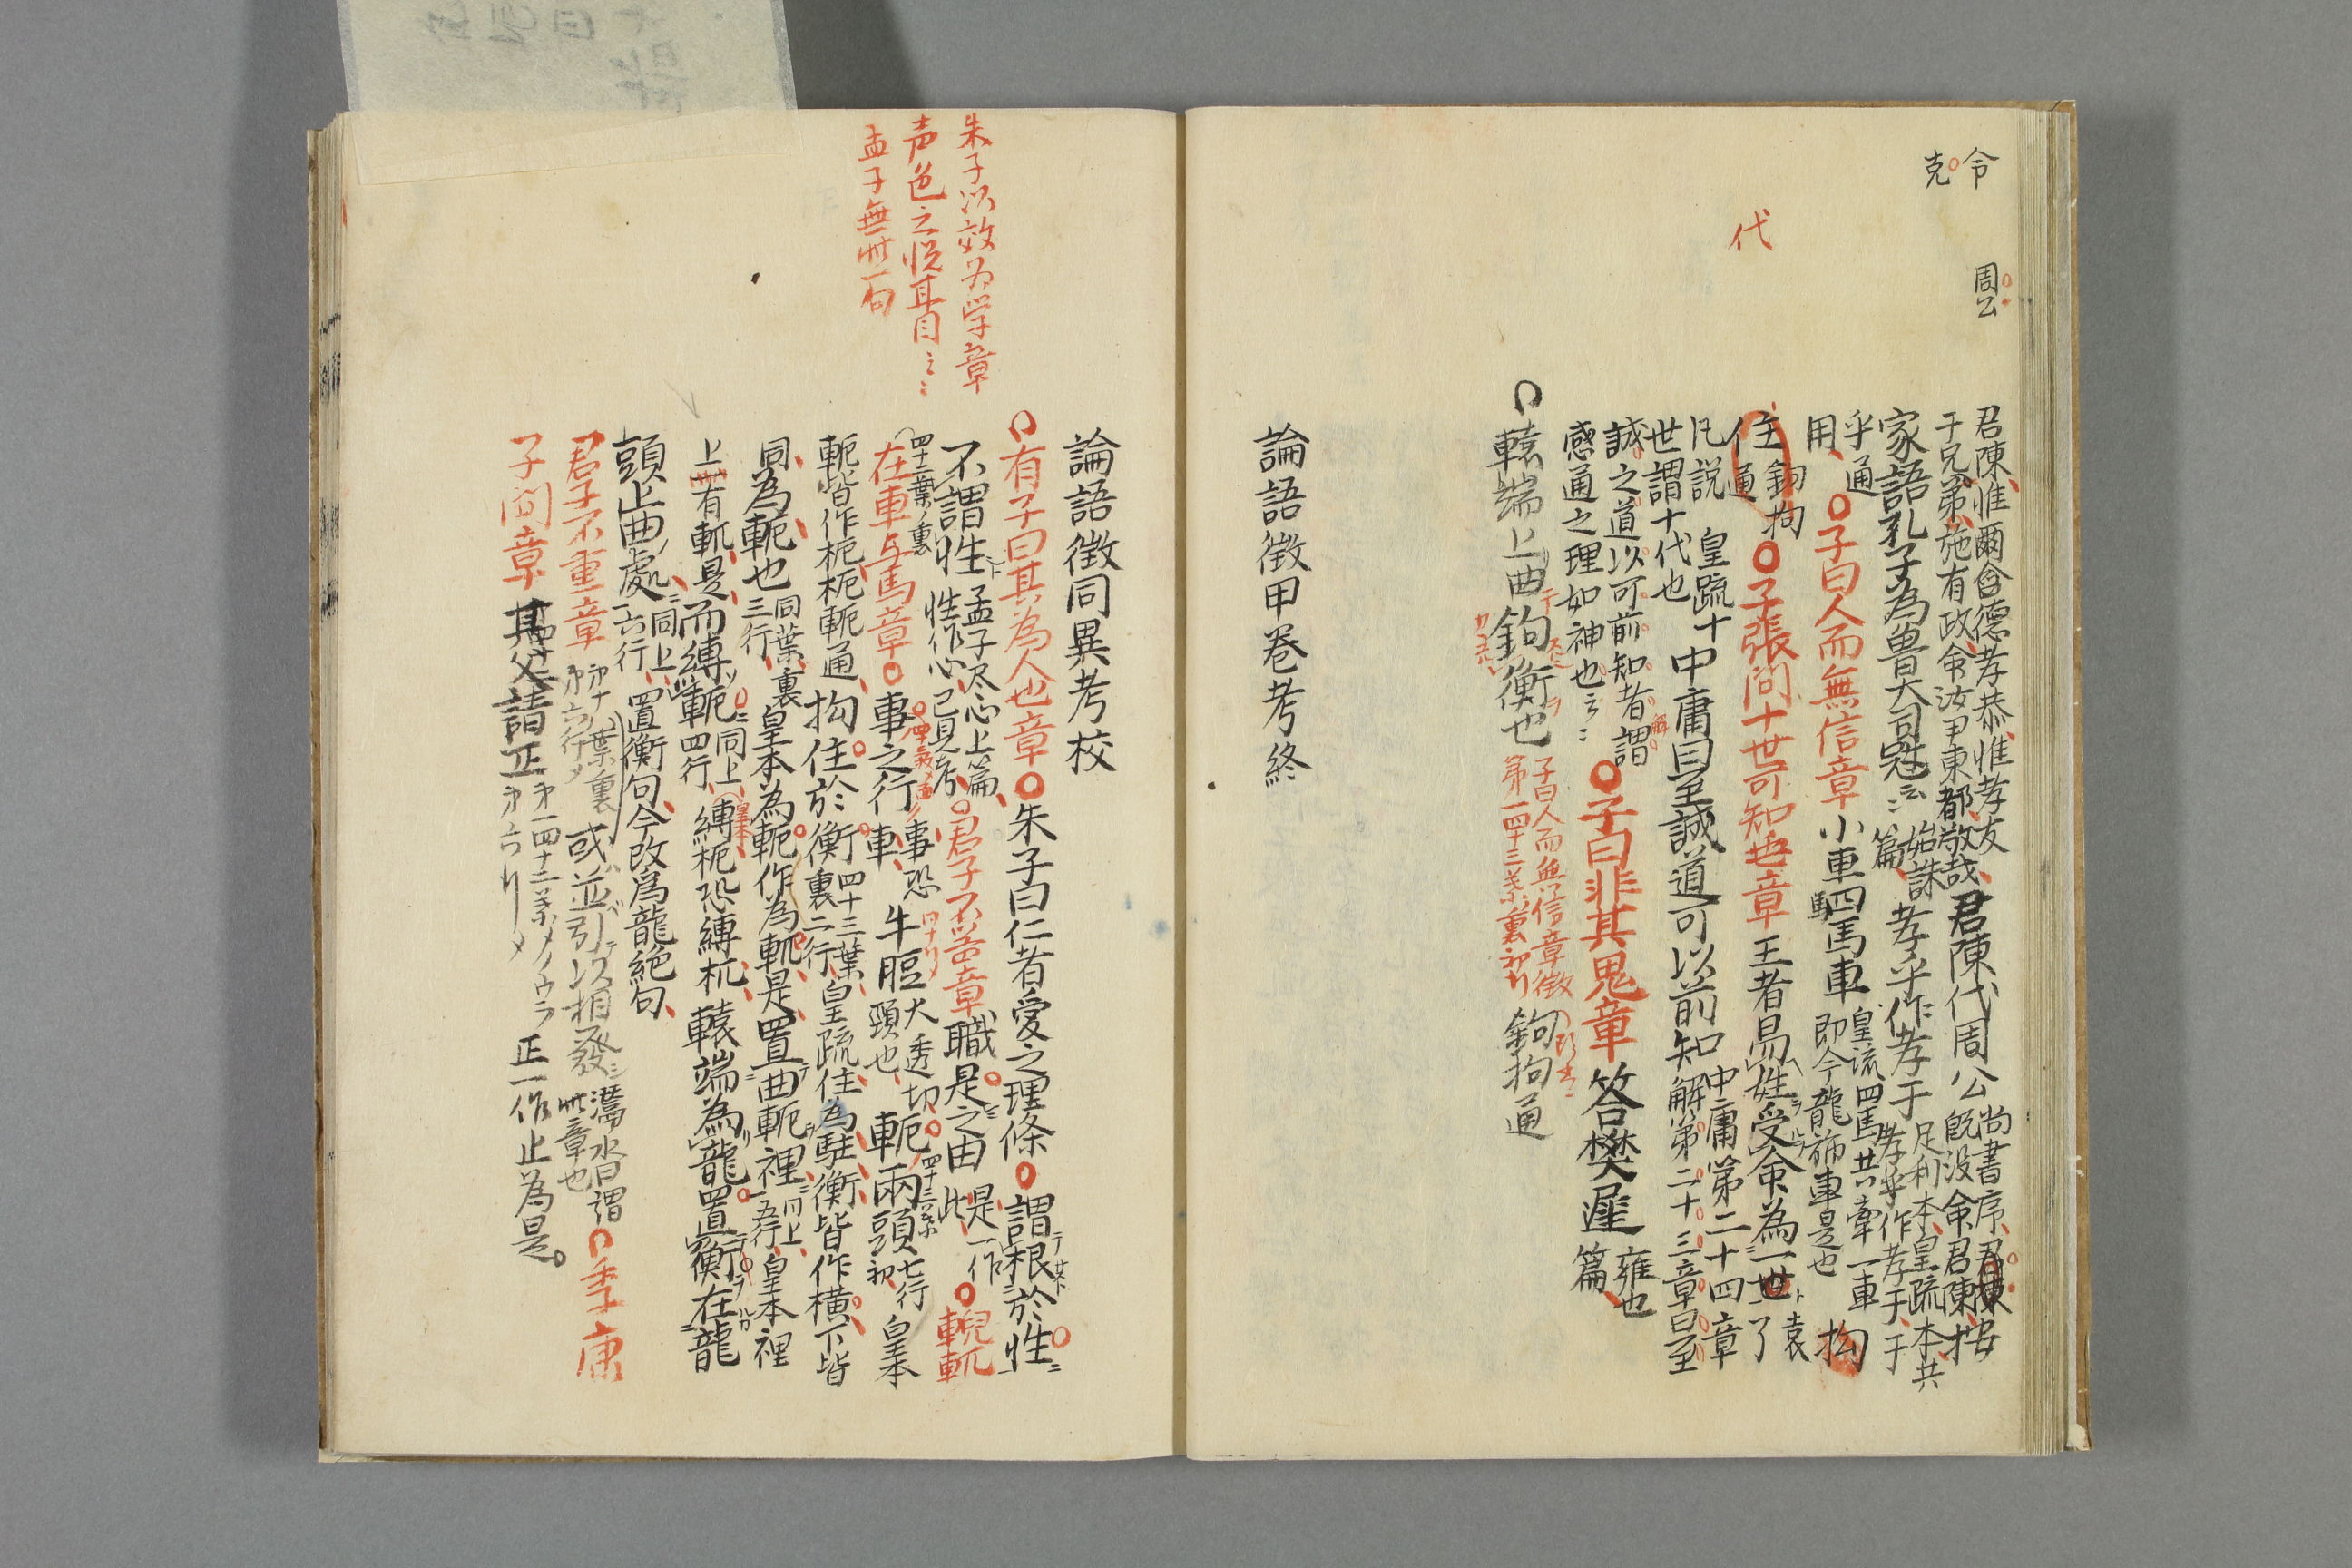 令
克
周公
代
君陳惟爾令德孝恭惟孝友
于兄弟施有政命汝尹東都敬哉
君陳代周公
尚書序
既没命君陳
按
家語孔子為魯大司冦云〻
始誅
篇
孝乎作孝于
足利本皇疏本共
孝乎作孝于于
乎通
用
子曰人而無信章
小車四馬車
駟
皇疏四馬共牽一車
即今龍旂車是也
拘
住
鉤拘
通
子張問十世可知也章
王者易姓受命為一世
袁
了
凡説
皇疏十
世謂十代也
中庸曰至誠道可以前知
中庸第二十四章
解第二十三章曰至
誠之道以可前知者謂
感通之理如神也云〻
子曰非其鬼章
答樊遲
雍也
篇
轅端上曲鉤衡也
子曰人而無信章徴
第一四十三葉裏初行
鉤拘通
論語徴甲巻考終
朱子以效为学章
声色之悦耳目云〻
孟子無此一句
論語徴同異考校
有子曰其為人也章
朱子曰仁者愛之理條
謂根於性
不謂性
孟子尽心上篇
性作心已見考
君子不器章
職是之由
是一作
此
輗軏
四十二葉ノ裏
在車与馬章
事之行
事恐
車
牛脰
大透切
頸也
軛兩頭
四十三葉
七行
初
皇本
軛皆作枙枙軛通
拘住於衡
四十三葉
裏二行
皇疏住為駐衡皆作横下皆
同為軛也
同葉裏
三行
皇本為軛作為軏是
置曲軛裡
同上
五行
皇本裡
上有軏是
而縛軛
同上
四行
皇本
縛枙恐縛杌
轅端為龍置衡在龍
頭上曲處
同上
六行
置衡句今改爲龍絶句
君子不重章
第十葉裏
第六行
或並引以相發
灊水曰謂
此章也
季康
子問章
其父請正
第一四十二葉ノウラ
第六行
正一作止為是